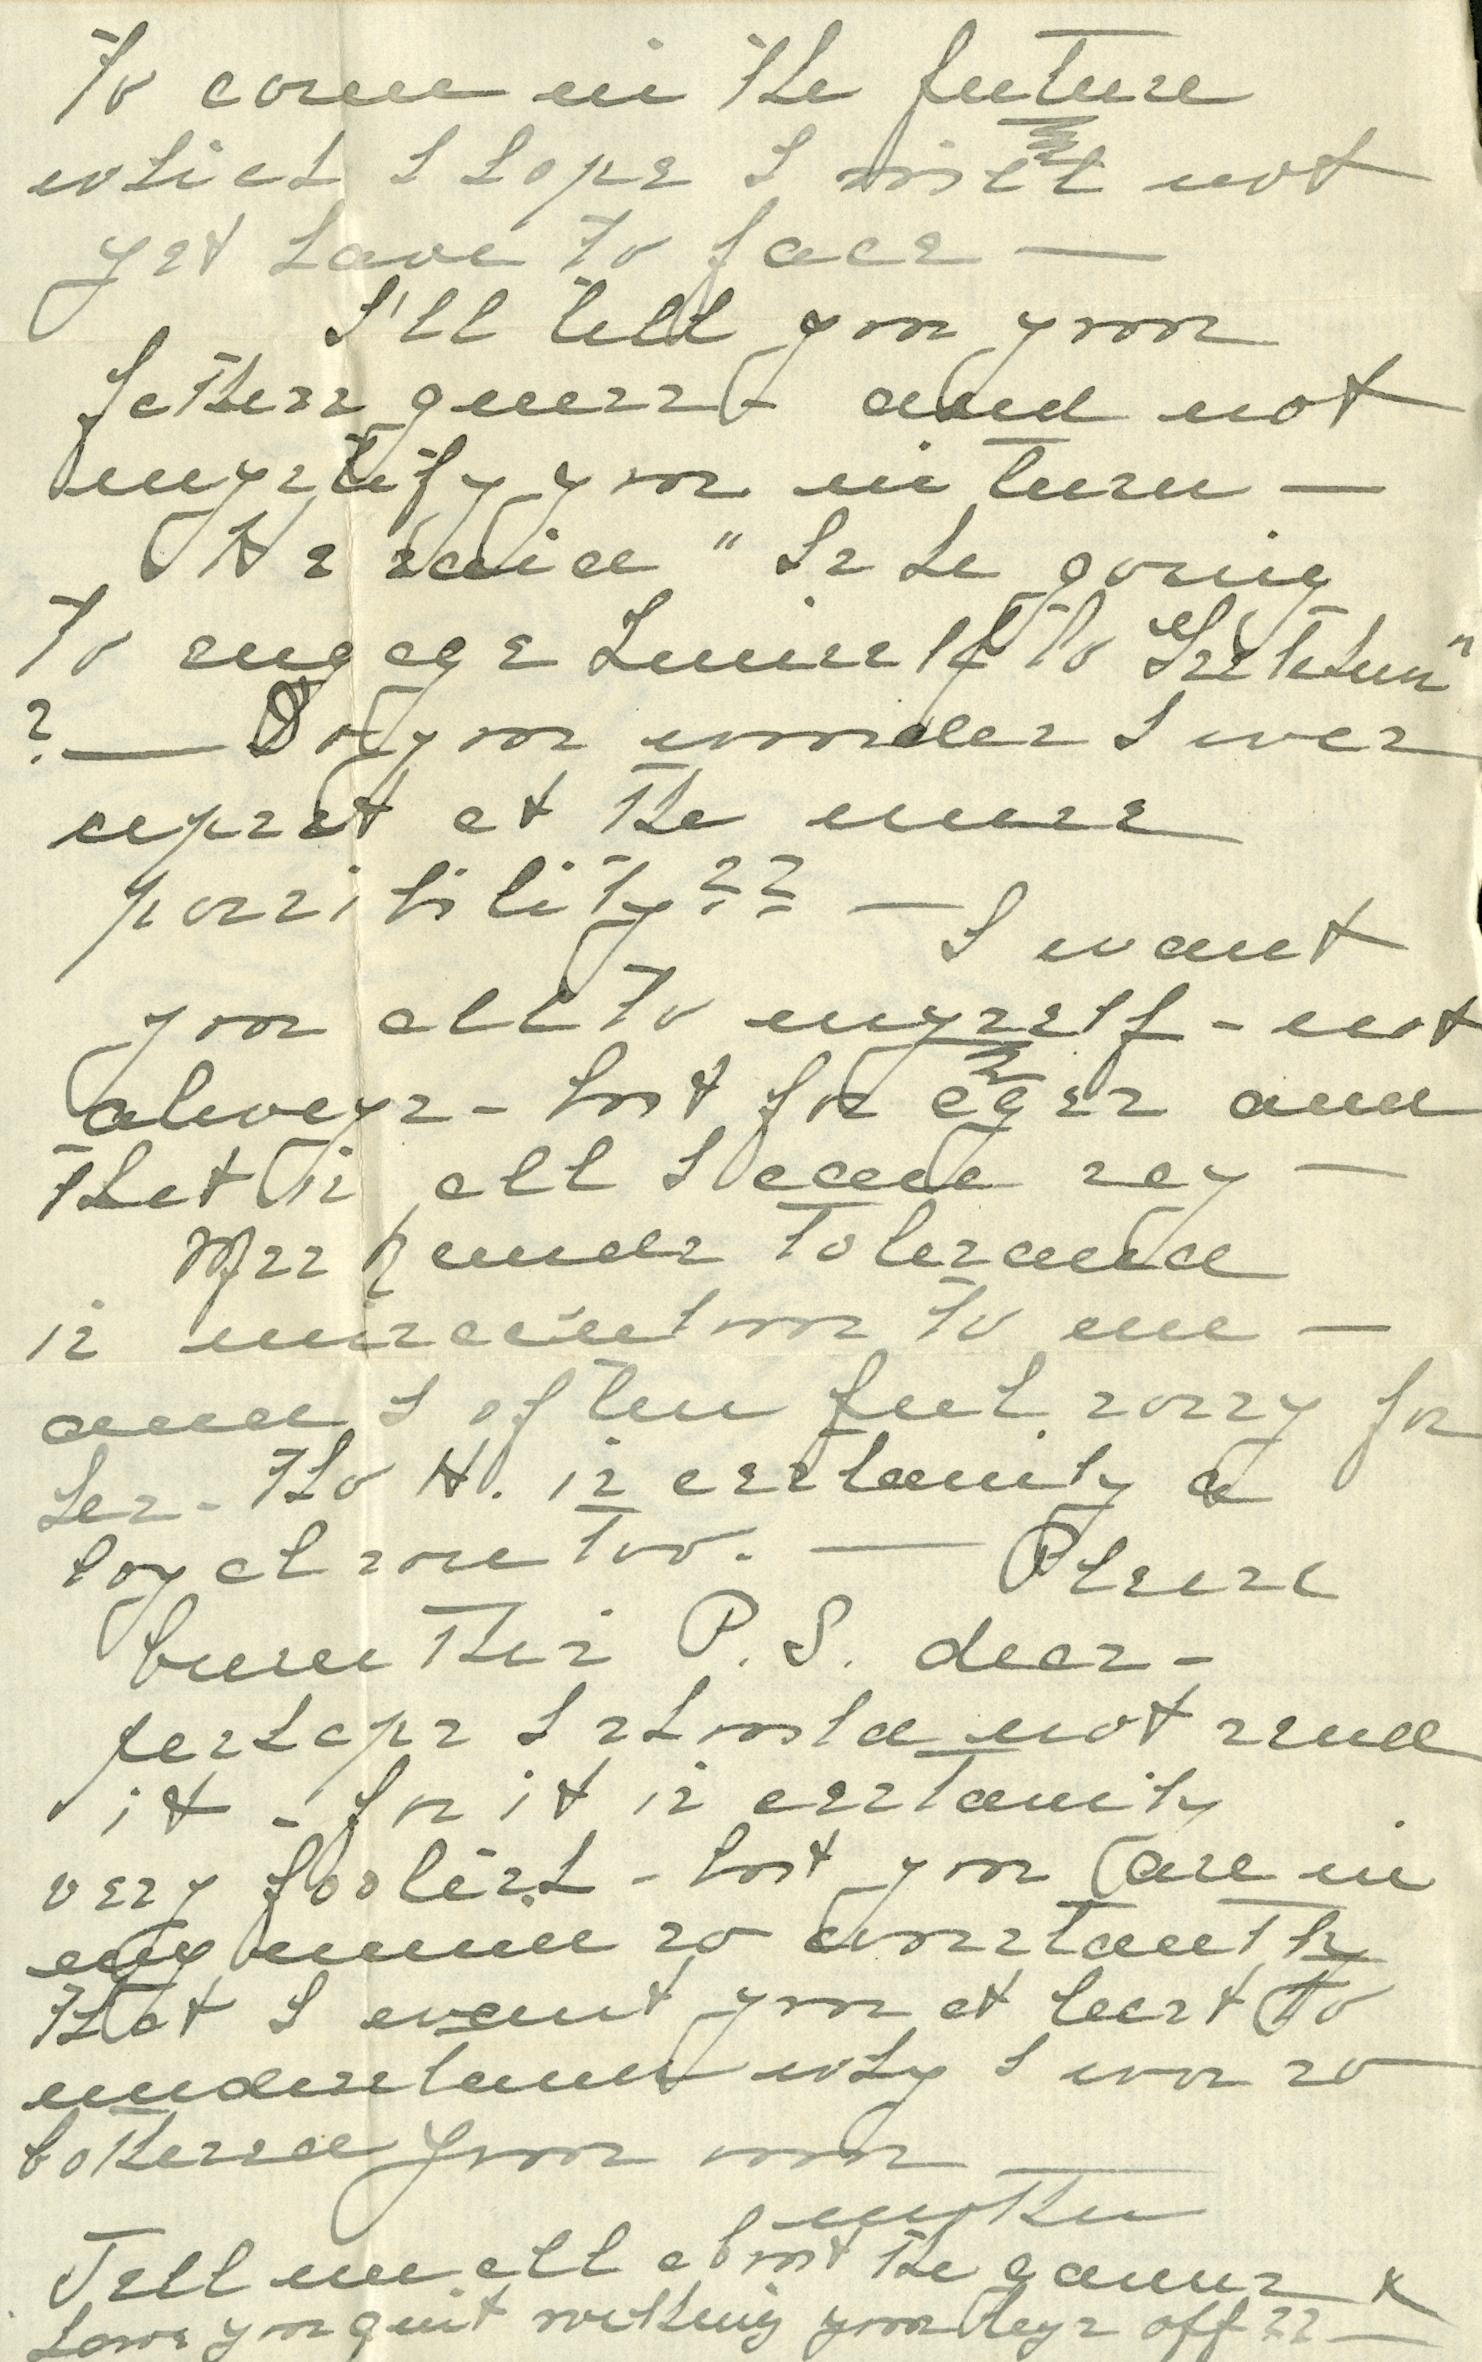 To come in the future
which I hope I will not
yet have to face —
I'll tell you your
fathers guess - and not
mystify you in turn —
He said "Is he going
to engage himself to Gretchen"
? — Do you wonder I was
upset at the mere
possibility?? — I want
you all to myself - not
always - but for ages and
that is all I can say —
Mrs tolerance
is to me —
and I often feel sorry for
her - Tho H. is certainly a
loyal son too. — Please
burn this P.S. dear -
perhaps I should not send
it - for it is certainly
very foolish - but you are in
my mind so constantly
that I want you at least to
understand why I was so
bothered. Your own —
mother
Tell me all about the game &
have you quit your legs off?? —